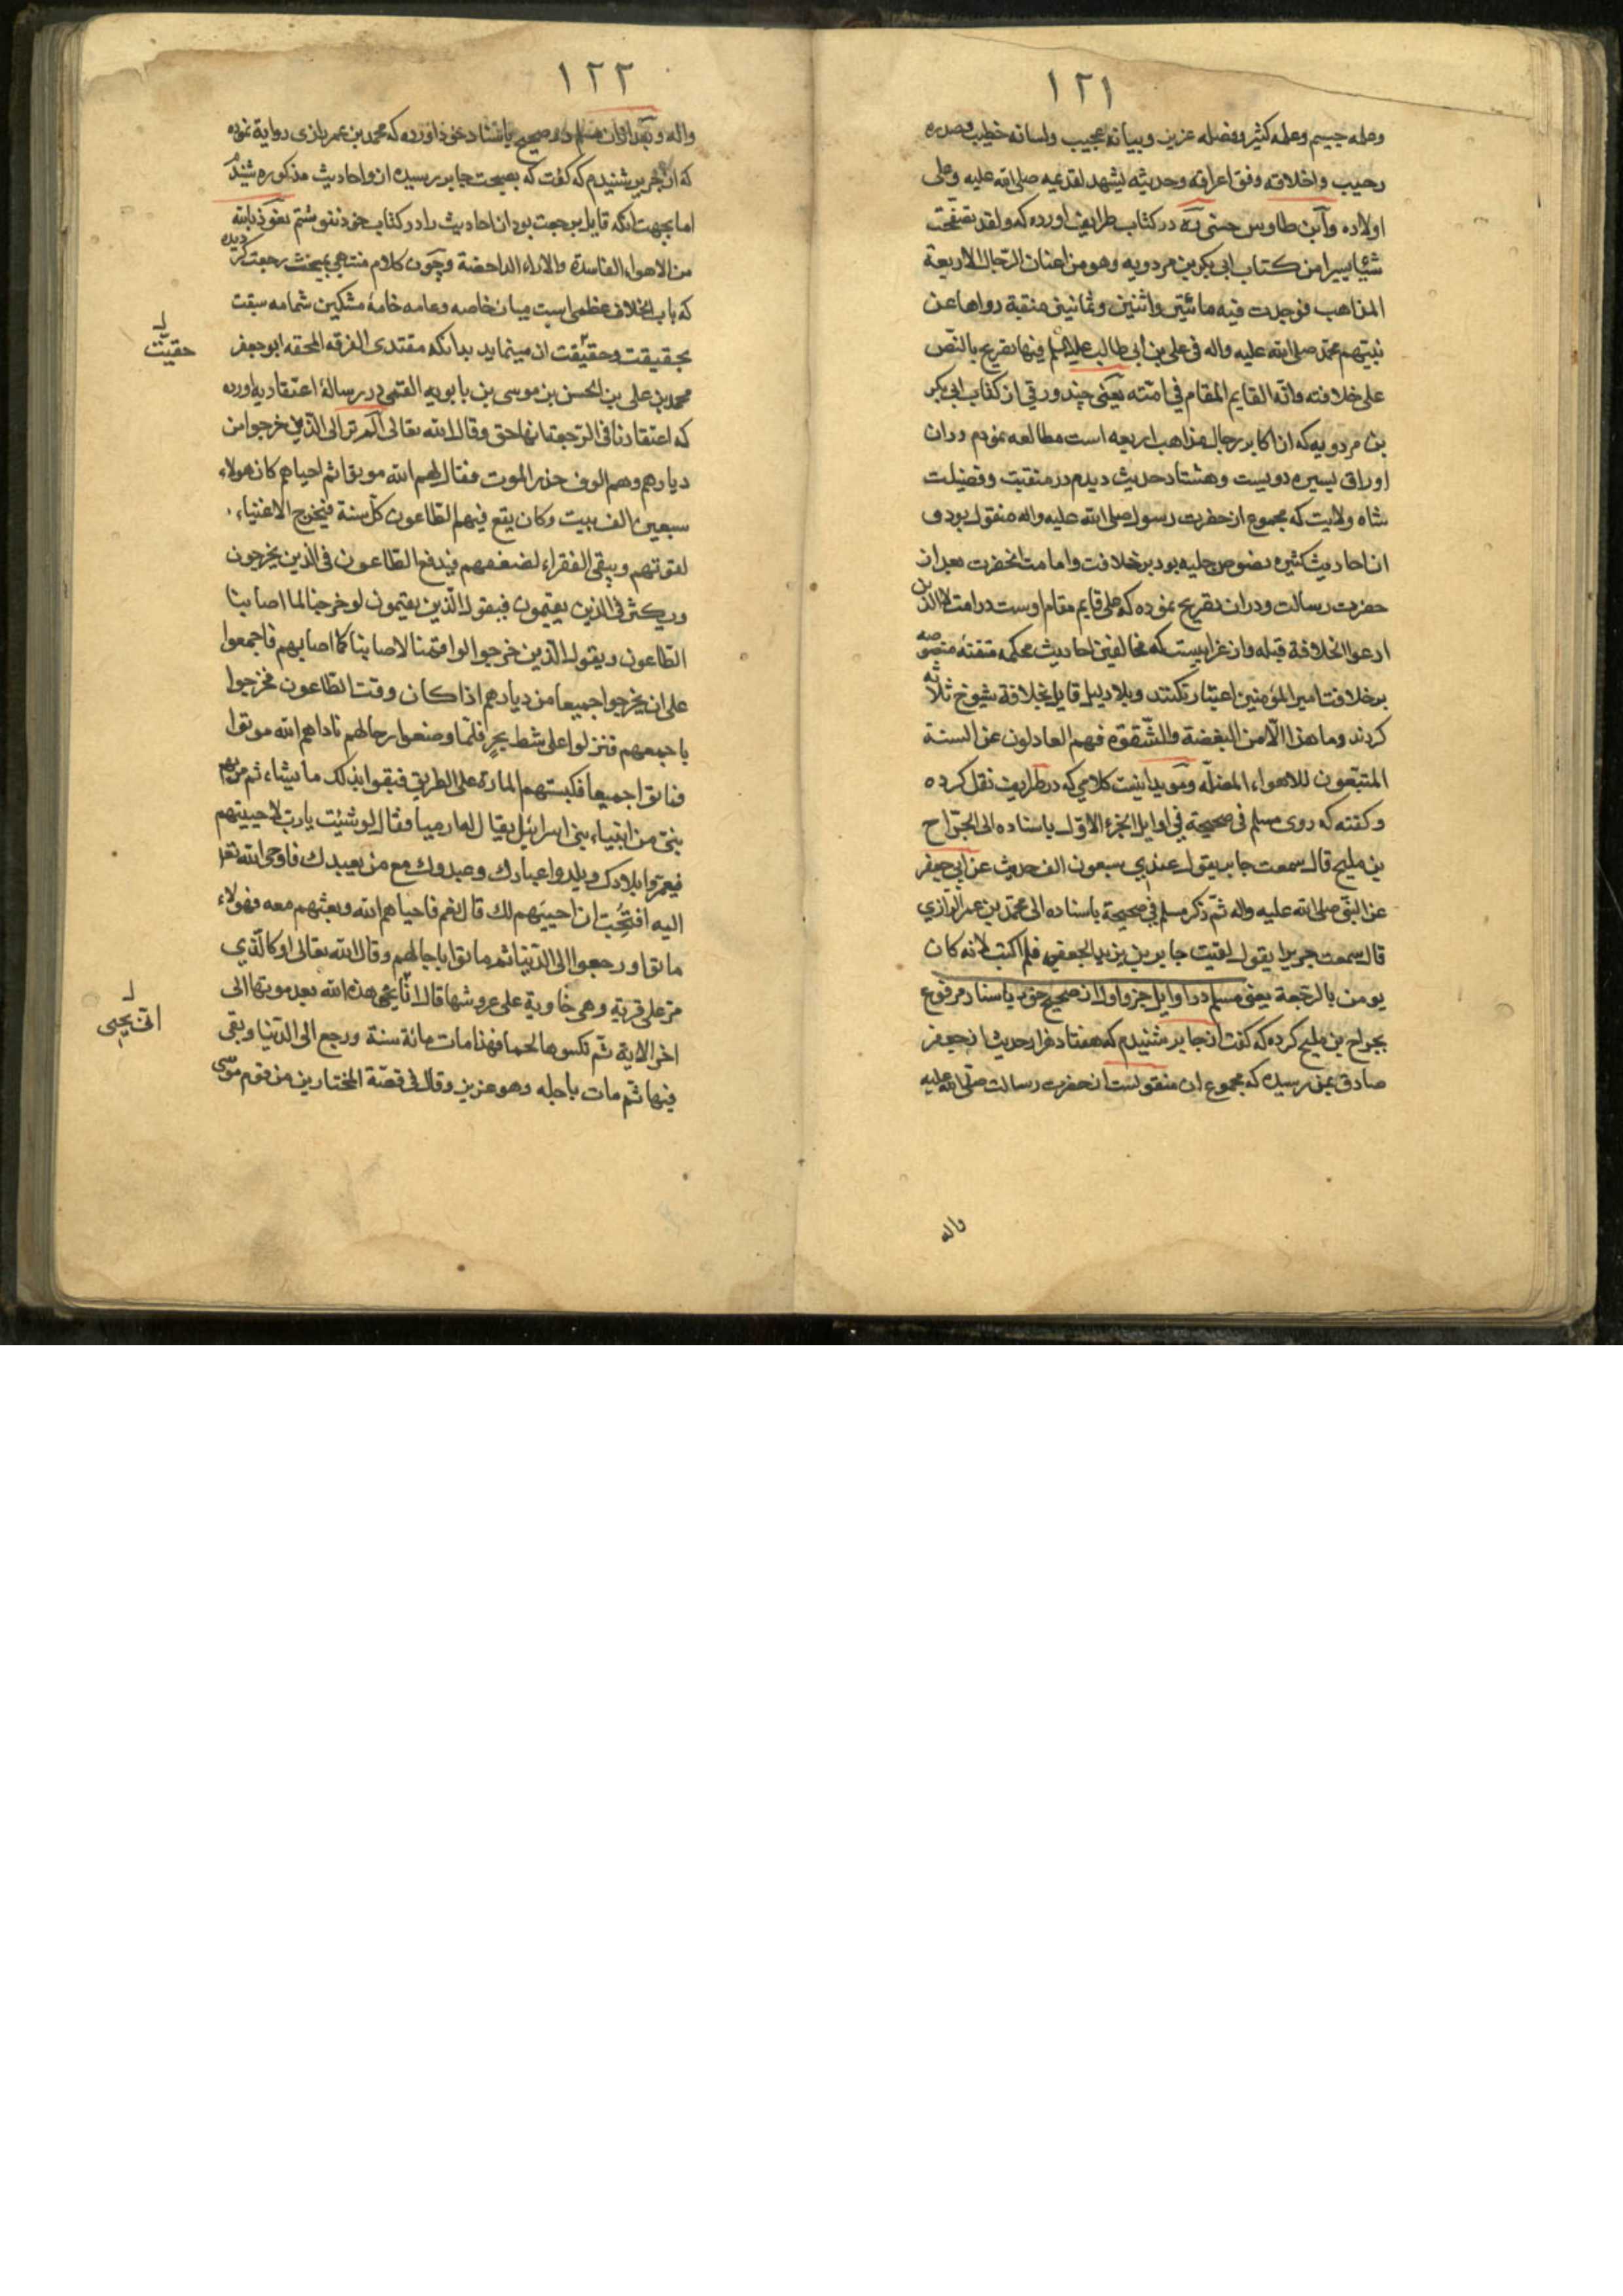 ١٢١
وعمله جسيم وعلمه كثير وفضله عزيز وبيانه عجيب ولسانه خطيب وصدره
رحيب واخلاقه وفق اعراقه وحديثه يشهد لقديمه صلى الله عليه وعلى
اولاده وابن طاوس حسنى در كتاب طرايف اورده كه ولقد تصفحت
شيئا يسيرا من كتاب ابى بكر بن مردويه وهو من اعيان الرجال الاربعة
المذاهب فوجدت فيه مائتين واثنين وثمانين منقبة رواها عن
نبيهم محمد صلى الله عليه واله فى على بن ابى طالب عليه السلم فيها تصريح بالنص
على خلافته وانه القايم المقام فى امته يعنى چند ورقى از كتاب ابى بكر
بن مردويه كه از اكابر رجال مذاهب اربعه است مطالعه نمودم در ان
اوراق يسيره دويست وهشتاد حديث ديدم در منقبت وفضيلت
شاه ولايت كه مجموع از حضرت رسول صلى الله عليه واله منقول بود و
ان احاديث كثيره نصوص جليه بود بر خلافت وامامت انحضرت بعد از
حضرت رسالت ودر ان تصريح نموده كه على قايم مقام اوست در امت لا الذين
ادعوا الخلافة قبله وان غرابيست كه مخالفين احاديث محكمه متفقه منصوصه
بر خلافت امير المؤمنين اعتبار نكنند وبلا دليل قايل بخلافة شيوخ ثلاثه
كردند وما هذا الا من البغضة والشقوة فهم العادلون عن السنة
المتبعون للاهواء المضلة ومويد اينست كلامى كه در طرايف نقل كرده
وكفته كه روى مسلم فى صحيحة فى اوايل الجزء الاول باسناده الى الجراح
بن مليح قال سمعت جابر يقول عندي سبعون الف حديث عن ابي جعفر
عن النبى صلى الله عليه واله ثم ذكر مسلم في صحيحة باسناده الى محمد بن عمر الرازي
قال سمعت جريرا يقول لقيت جابر بن يزيد الجعفى فلم اكتب لانه كان
يومن بالرجعة يعنى مسلم در اوايل جزو اول از صحيح خود باسناد مرفوع
بجراح بن مليح كرده كه كفت از جابر شنيدم كه هفتاد هزار حديث از جعفر
صادق بمن رسيده كه مجموع ان منقولست از حضرت رسالت صلى الله عليه
واله
١٢٢
واله وبعد از ان مسلم در صحيح باسناد خود اورده كه محمد بن عمر رازى رواية نموده
كه از جرير شنيدم كه كفت كه بصحبت جابر رسيده از و احاديث مذكوره شنيد
اما بجهت انكه قايل برجعت بود ان احاديث را در كتاب خود ننوشتم نعوذ بالله
من الاهواء الفاسدة والاراء الداحضة وچون كلام منتهى بمبحث رجعت كرديده
كه باب اختلاف عظمى است ميان خاصه وعامه خامهٔ مشكين شمامه سبقت
بحقيقت وحقيقت ان مينمايد بدانكه مقتدى الفرقه المحقه ابو جعفر
حقيّت
محمد بن على بن الحسن بن موسى بن بابويه القمى در رسالهٔ اعتقاديه اورده
كه اعتقادنا فى الرجعة انها حق وقال الله تعالى الم تر الى الذين خرجوا من
ديارهم وهم الوف حذر الموت فقال لهم الله موتوا ثم احياهم كان هولاء
سبعين الف بيت وكان يقع فيهم الطاعون كل سنة فيخرج الاغنياء
لقوتهم ويبقى الفقراء لضعفهم فيدفع الطاعون فى الذين يخرجون
ويكثر فى الذين يقيمون فيقول الذين يقيمون لو خرجنا لما اصابنا
الطاعون ويقول الذين خرجوا لو اقمنا لاصابنا كما اصابهم فاجمعوا
على ان يخرجوا جميعا من ديارهم اذا كان وقت الطاعون فخرجوا
باجمعهم فنزلوا على شط بحر فلما وضعوا رحالهم ناداهم الله موتوا
فماتوا جميعا فكبستهم المارة على الطريق فبقوا بذلك ما يشاء ثم مر بهم
نبى من انبياء بنى اسرائيل يقال له ارميا فقال لو شئت يا رب لاحييتهم
فيعمروا بلادك ويلدوا عبادك وعبدوك مع من يعبدك فاوحى الله تعالى
اليه افتحب ان احييهم لك قال نعم فاحياهم الله وبعثهم معه فهولاء
ماتوا ورجعوا الى الدنيا ثم ماتوا باجالهم وقال الله تعالى او كالذي
مر على قرية وهى خاوية على عروشها قال انا يحيى هذه الله بعد موتها الى
انى يحيى
اخر الاية ثم نكسوها لحما فهذا مات مائة سنة ورجع الى الدنيا وبقى
فيها ثم مات باجله وهو عزيز وقال فى قصة المختارين من قوم موسى